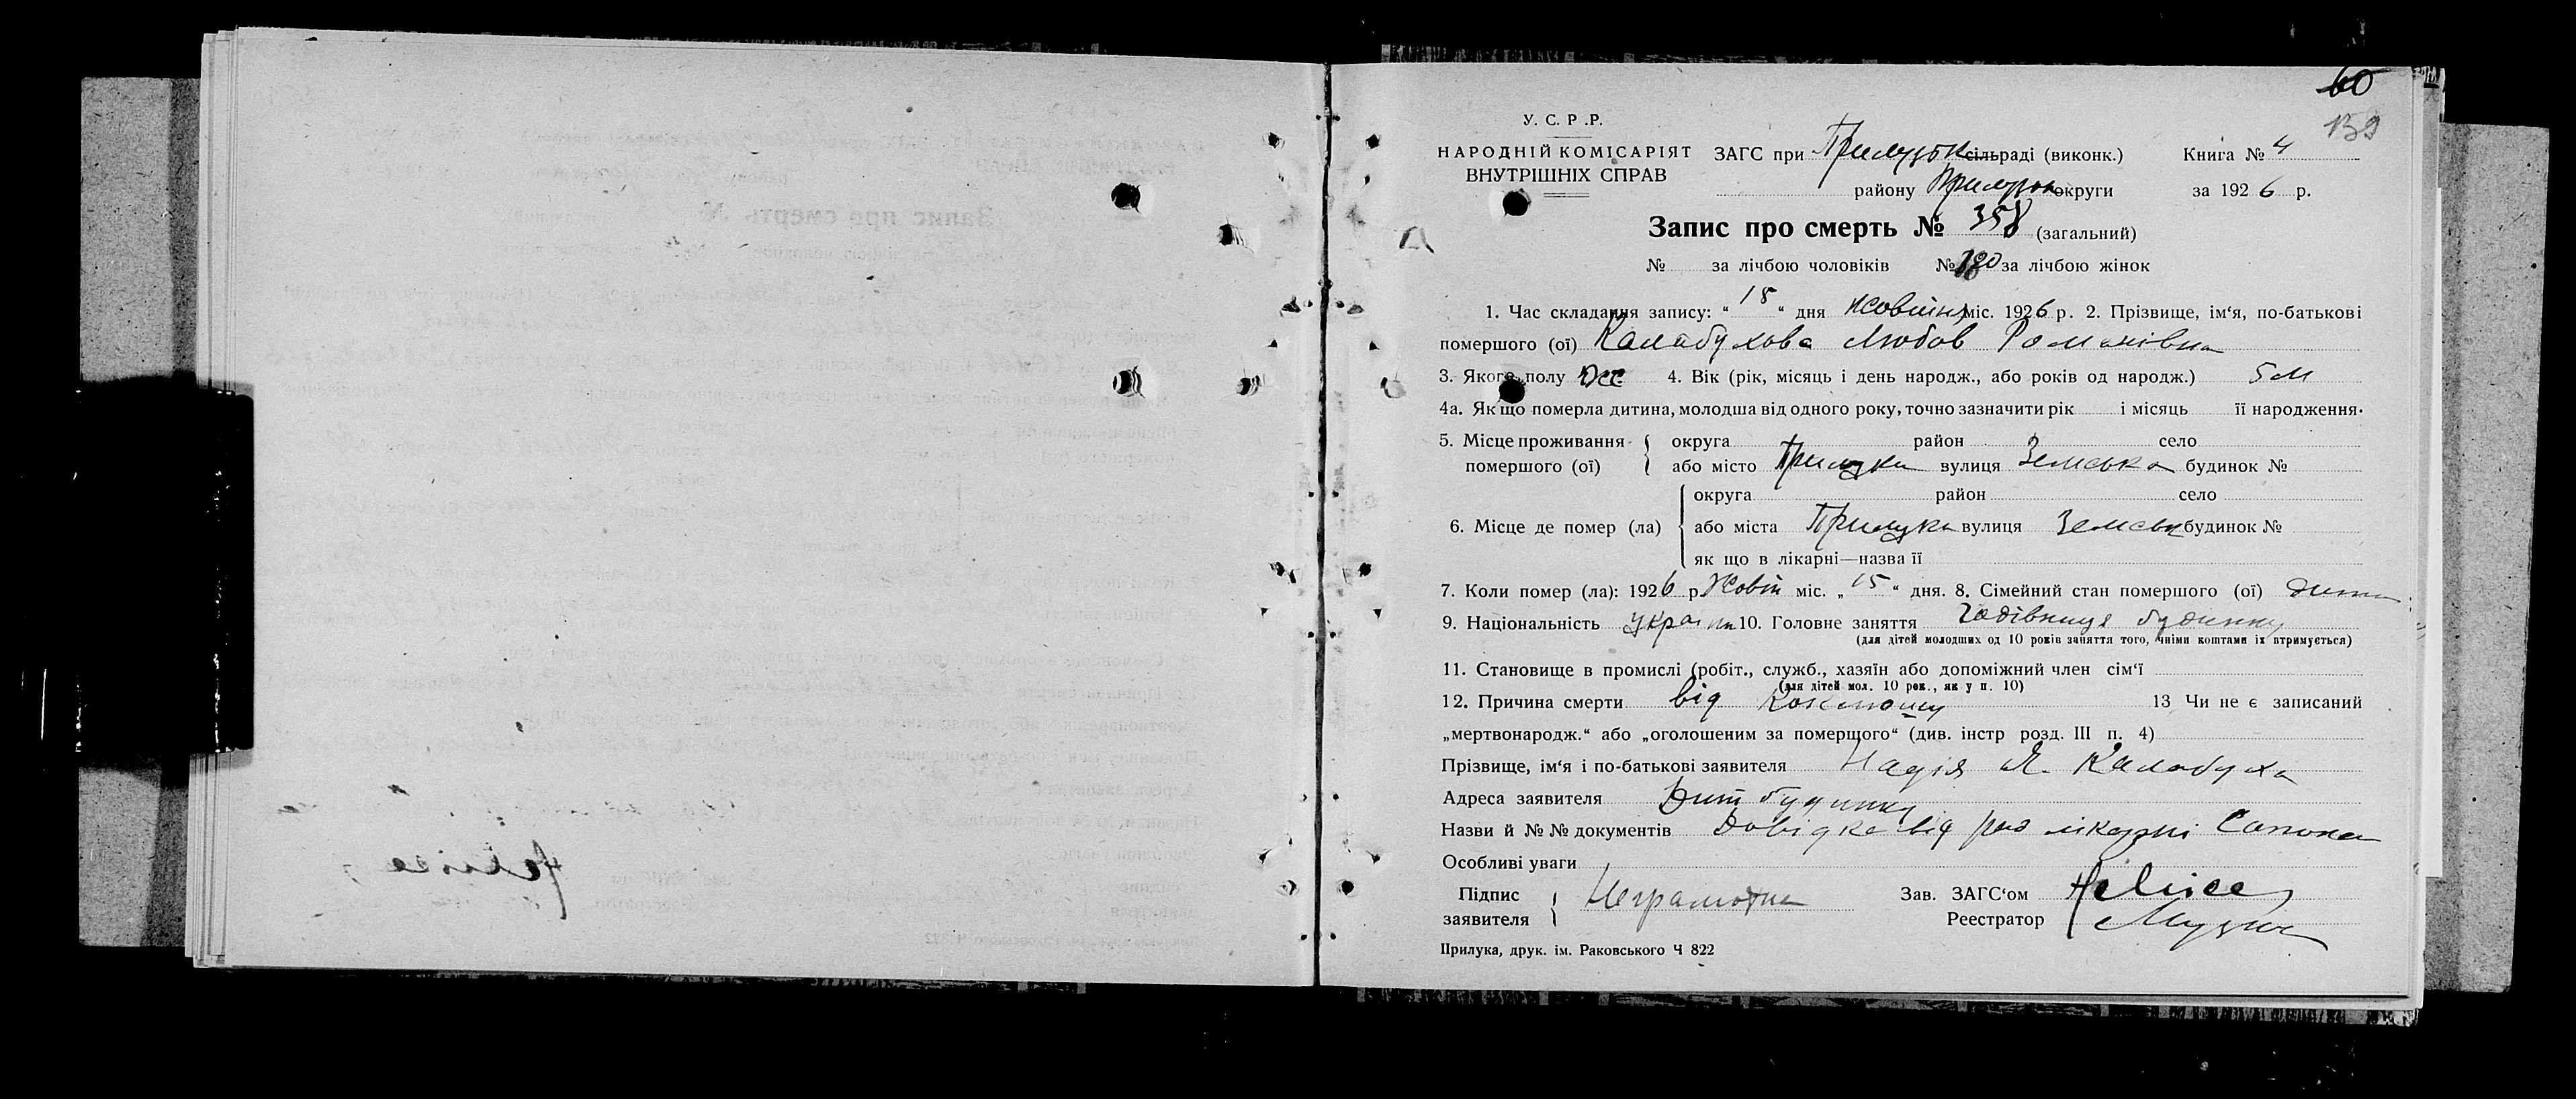 60
159
У. С. Р .Р.
НАРОДНІЙ КОМІСАРІЯТ ЗАГС при Прилуцьк сільраді (виконк.) Книга № 4
ВНУТРІШНІХ СПРАВ району Прилуцьк округи за 1926 р.
Запис про смерть № 358 (загальний)
№ за лічбою чоловіків № 180 за лічбою жінок
1. Час складання запису: “ 18 “ дня Жовтня міс. 1926 р. 2. Прізвище, ім‘я, по-батькові
помершого (ої) Калабухова Любов Романівна
3. Якого полу Жс 4. Вік (рік, місяць і день народж., або років од народж.) 5 м
4а. Як що померла дитина, молодша від одного року, точно зазначити рік і місяць її народження.
5. Місце проживання округа район село
помершого (ої) або місто Прилука вулиця Земська будинок №
округа район село
6. Місце де помер (ла) або міста Прилука вулиця Земськ будинок №
як що в лікарні—назва її
7. Коли помер (ла): 1926 р. Жовт міс. „ 15 “ дня. 8. Сімейний стан помершого (ої) дит
9. Національність україн 10. Головне заняття Годівниця будинку
(для дітей молодших од 10 років заняття того, чиїми коштами їх втримується)
11. Становище в промислі (робіт., служб., хазяїн або допоміжний член сім‘ї
(для дітей мол. 10 рок., як у п. 10)
12. Причина смерти від Коклюшу 13 Чи не є записаний
„мертвонародж.“ або „оголошеним за померщого“ (див. інстр розд. III п. 4)
Прізвище, ім‘я і по-батькові заявителя Надія Я. Калабуха
Адреса заявителя Дит будинку
Назви й №№ документів Довідка від рад лікарні Сапона
Особливі уваги
Підпис Неграмотна Зав. ЗАГС‘ом
заявителя Реестратор
Прилука, друк. ім. Раковського Ч 822